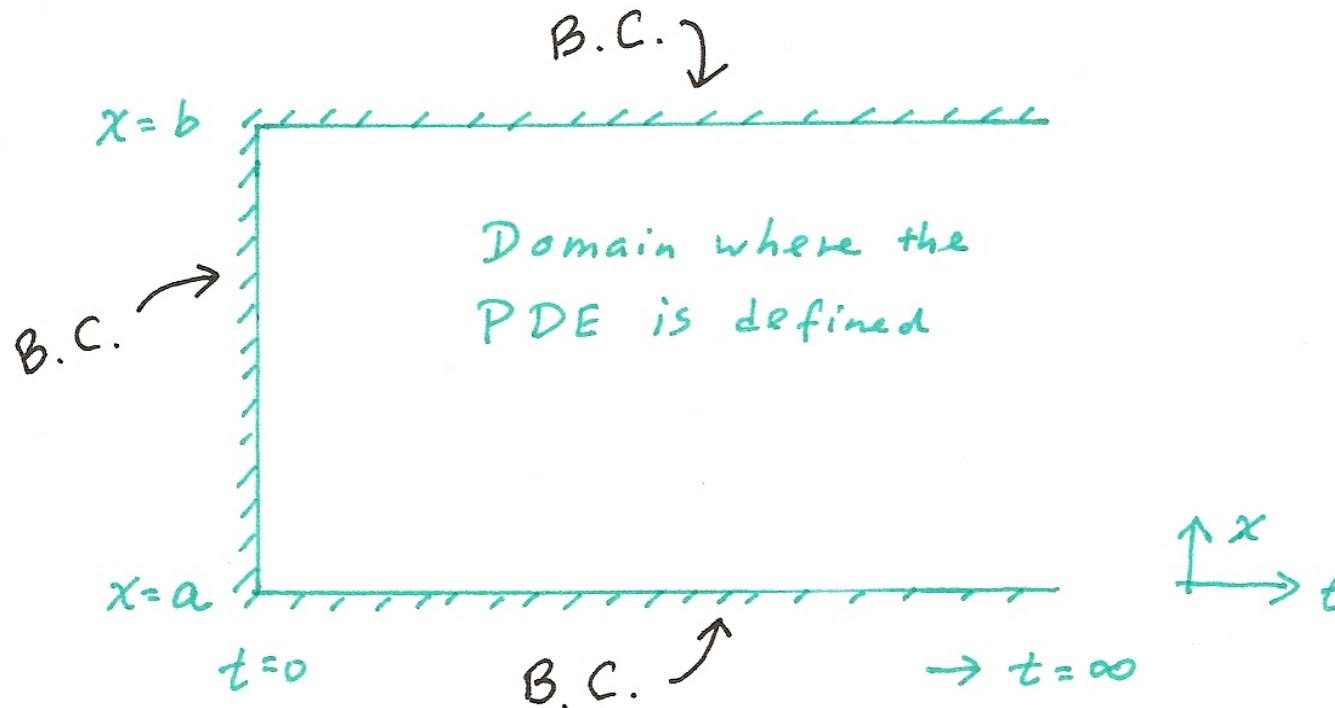 B.C.
x=b
Domain where the
PDE is defined
B.C.
x=a
x
t
t=0
B.C.
→ t=∞